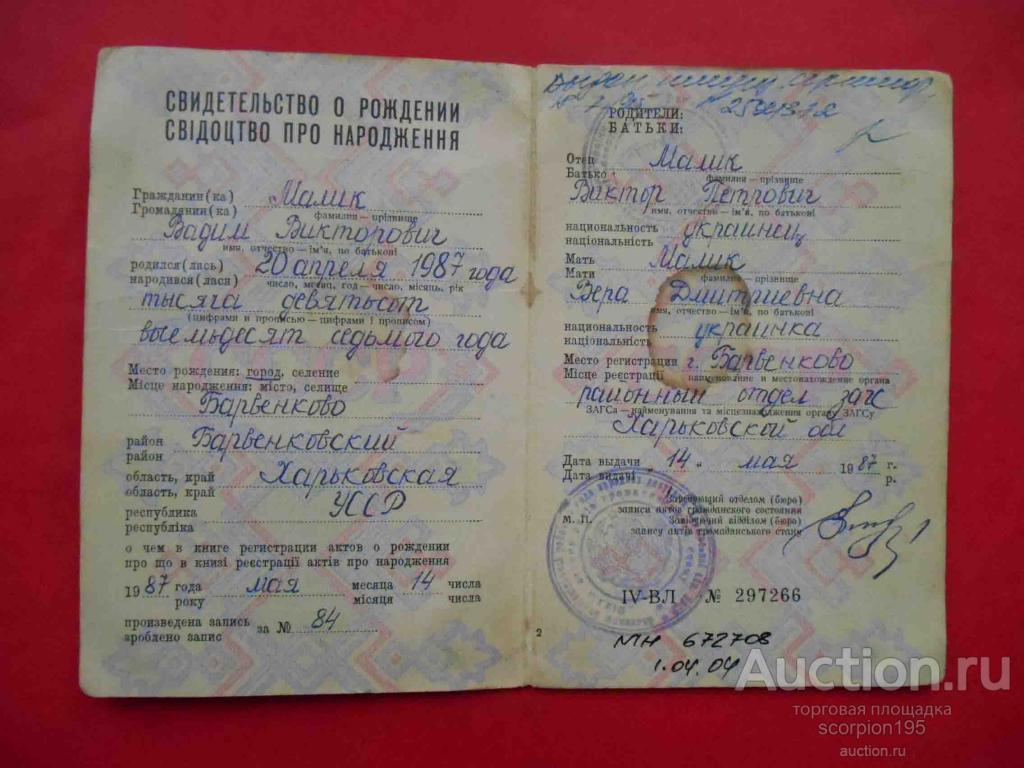 СВИДЕТЕЛЬСТВО О РОЖДЕНИИ
СВІДОЦТВО ПРО НАРОДЖЕННЯ
Гражданин(ка) Малик
Громадянин(ка)
фамилия — прізвище
Вадим Викторович
имя, отчество — ім'я, по батькові
родился(лась) 20 апреля 1987 года
народився(лася) число, месяц, год — число, місяць, рік
тысяга девятьсот
(цифрами и прописью — цифрами і прописом)
восемьдесят седьмого года
Место рождения: город, селение
Місце народження: місто, селище
Барвенково
район Барвенковский
район
область, край Харьковская
область, край
республика УССР
республіка
о чем в книге регистрации актов о рождении
про що в книзі реєстрації актів про народження
1987 года мая месяца 14 числа
року місяця числа
произведена запись за № 84
зроблено запис
Выдан
РОДИТЕЛИ:
БАТЬКИ:
Отец Малик
Батько
фамилия — прізвище
Виктор Петрович
имя, отчество — ім'я, по батькові
национальность украинец
національність
Мать Малик
Мати фамилия — прізвище
Вера Дмитриевна
имя, отчество — ім'я, по батькові
национальность украинка
національність
Место регистрации г. Барвенково
Місце реєстрації наименование и местонахождение органа
районный отдел загс
ЗАГСа — найменування та місцезнаходження органу ЗАГСу
Харьковской обл
Дата выдачи „ 14 " мая 1987 г.
Дата видачі р.
Заведующий отделом (бюро)
записи актов гражданского состояния
М. П. Завідуючий відділом (бюро)
запису актів громадянського стану
IV-ВЛ № 297266
2
МН 672708
1.04.04
Auction.ru
торговая площадка
scorpion195
auction.ru